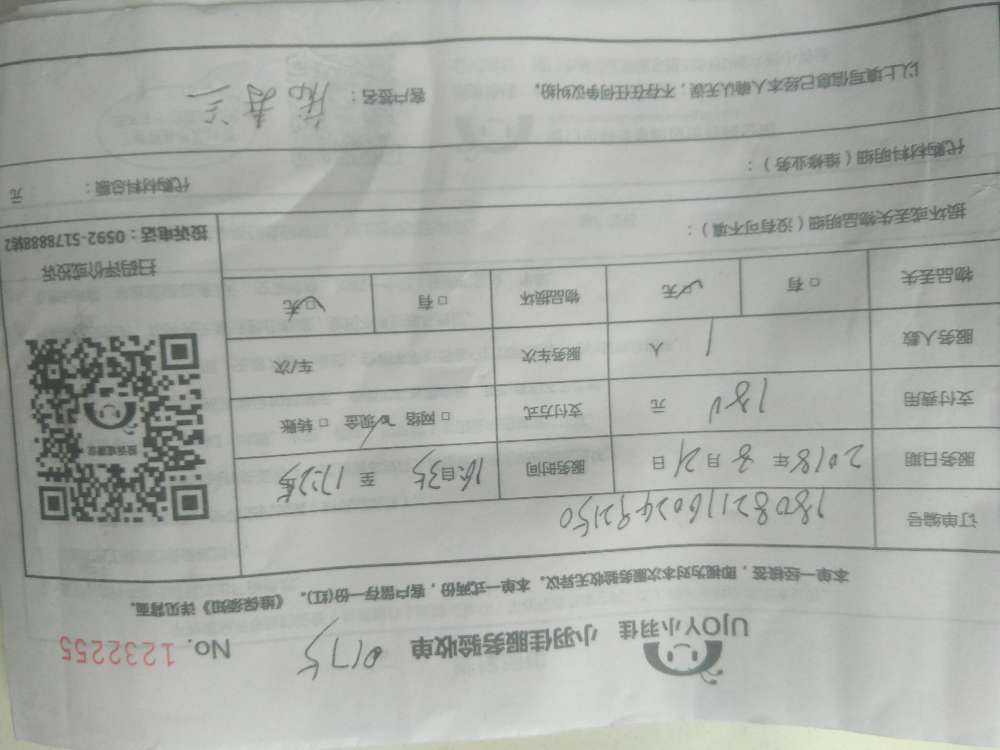 UJOY小羽佳 小羽佳服务验收单 0175 No. 1232255
本单一经核签，即视为对本次服务验收无异议。本单一式两份，客户留存一份(红)。《维保须知》详见背面。
订单编号 1808211602492150
服务日期 2018年 8月 21日 服务时间 16:35 至 17:25
支付费用 180 元 支付方式 □网络 ☑现金 □转账
服务人数 1 人 服务车次 车/次
物品丢失 □有 ☑无 物品损坏 □有 ☑无
投诉或建议
扫码评价或投诉
投诉电话：0592-5178888转2
损坏或丢失物品明细（没有可不填）：
代购材料明细（维修业务）： 代购材料总额： 元
以上填写信息已经本人确认无误，不存在任何争议纠纷。 客户签名：